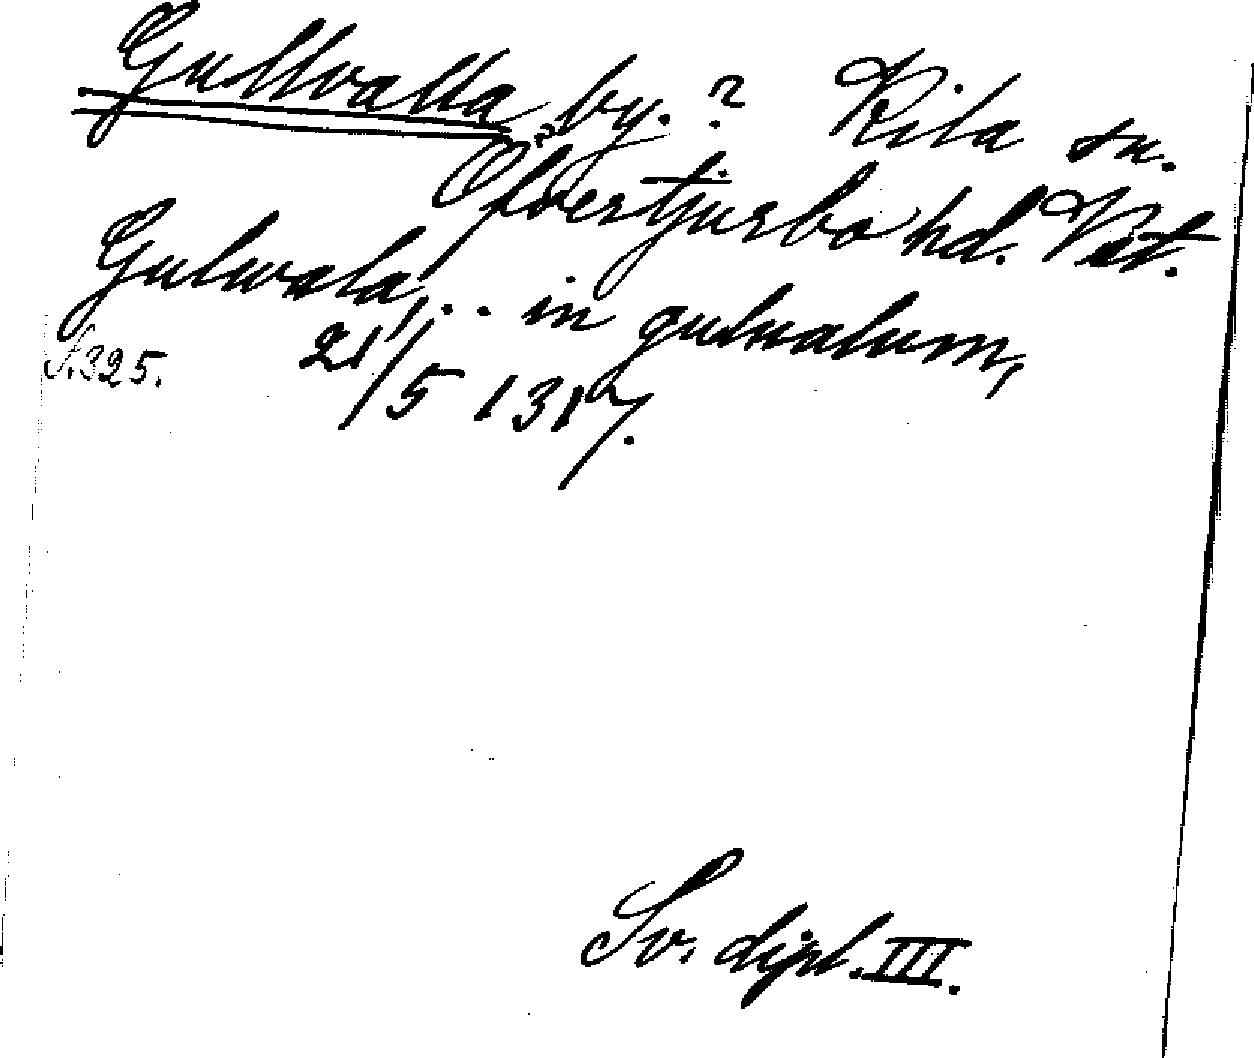 Gullvalla, by. ? Kila sn.
Öfvertjurbo hd. Vst.
Gulwala, .. in gulualum,
S. 325. 21/5 1317.
Sv. dipl. III.